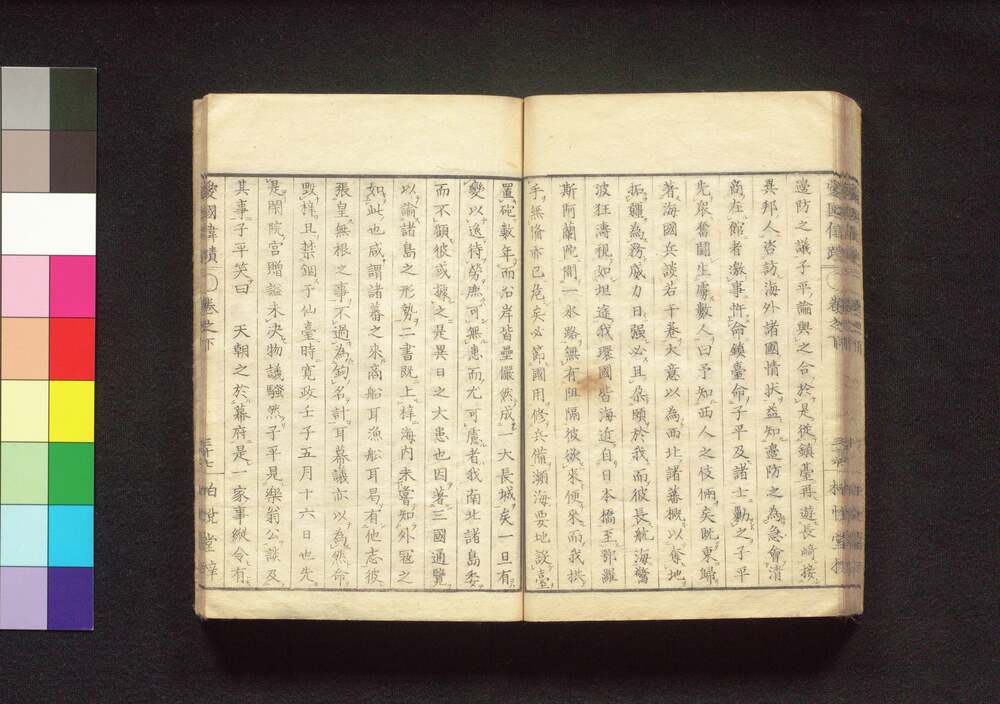 邊防之議子平論與之合於是從鎮臺再遊長崎接
異邦人咨訪海外諸國情狀益知邊防之為急會清
商在館者激事忤命鎮臺命子平及諸士勦之子平
先衆奮鬪生虜數人曰予知西人之伎倆矣既東歸
著海國兵談若干巻大意以為西北諸蕃概以奪地
拓疆為務威力日强必且朶頤於我而彼長航海驚
波狂濤視如坦途我環國皆海近自日本橋至鄂羅
斯阿蘭陀間一水路無有阻隔彼欲來便來而我拱
手無備亦已危矣必節國用修兵備瀕海要地設臺
置砲數年而沿岸皆壘儼然成一大長城矣一旦有
變以逸待勞庶可無患而尤可慮者我南北諸島委
而不顧彼或據之是異日之大患也因著三國通覽
以諭諸島之形勢二書既上梓海内未嘗知外冦之
如此也咸謂諸蕃之來商船耳漁船耳曷有他志彼
張皇無根之事不過為鉤名計耳幕議亦以為然命
毀梓且禁錮于仙臺時寛政壬子五月十六日也先
是閑院宮贈謚未決物議騷然子平見樂翁公談及
其事子平笑曰　天朝之於幕府是一家事縱令有
愛國偉蹟　巻之下　三十七　柏悅堂梓